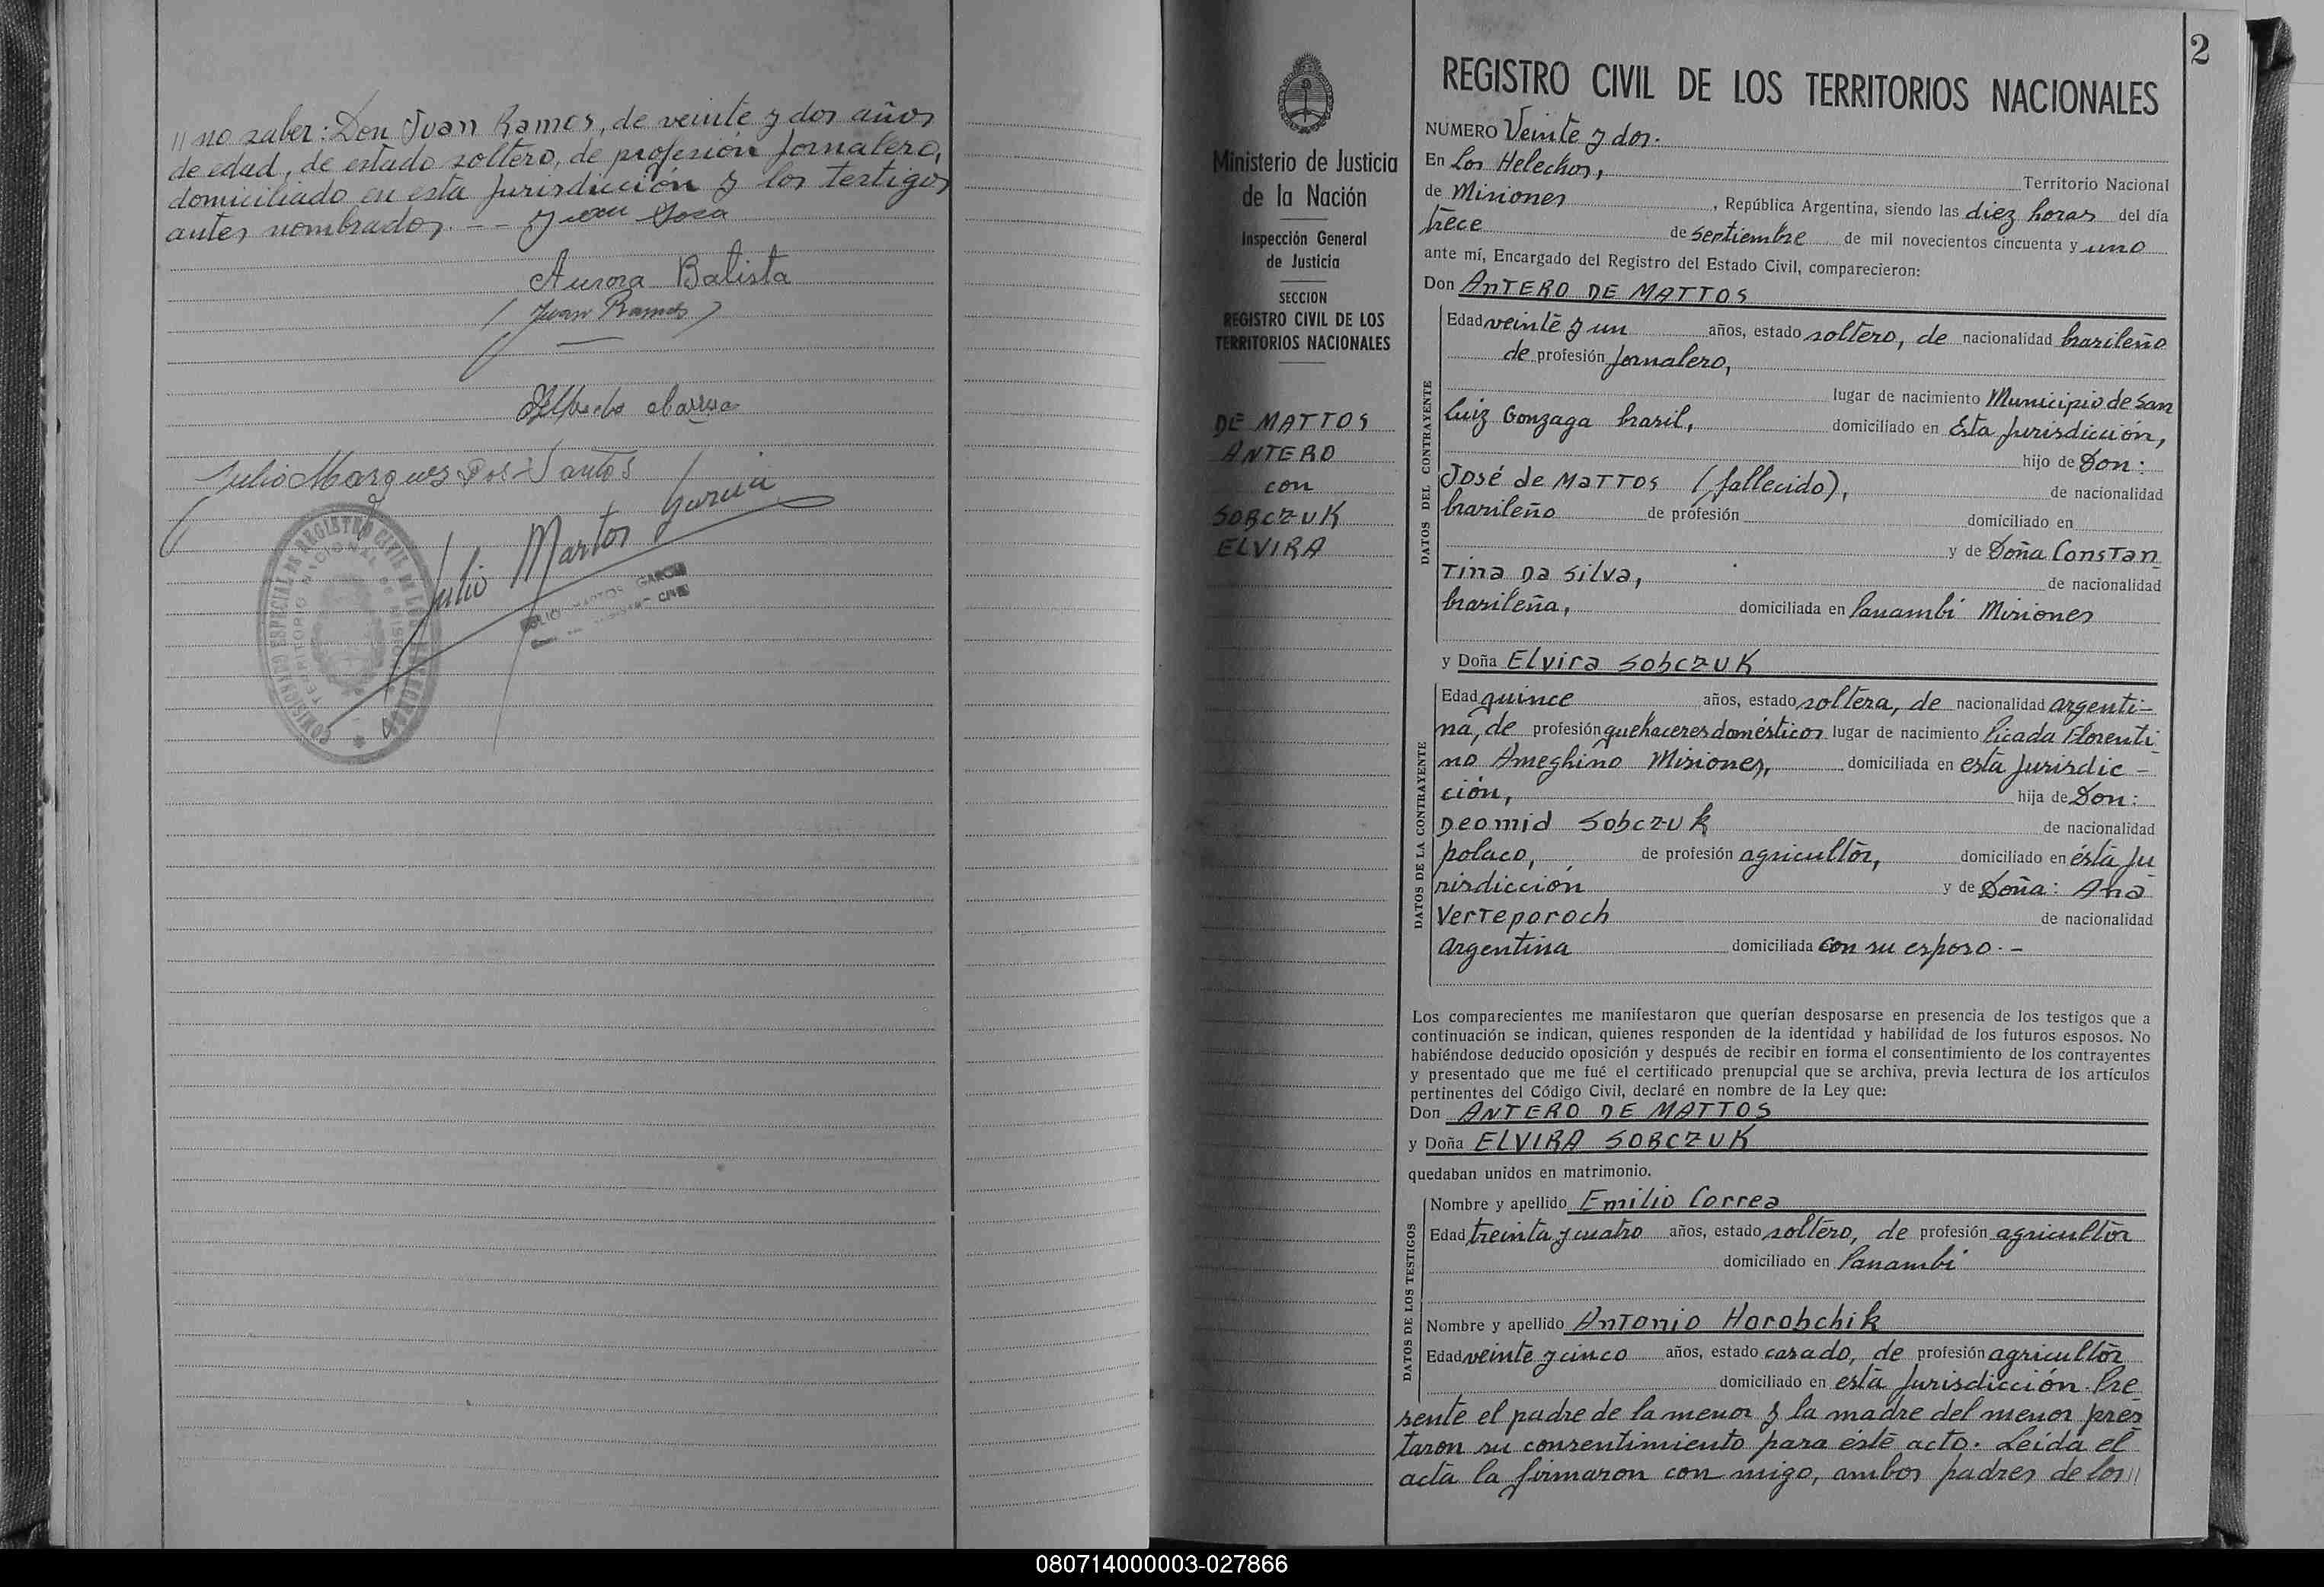 // no saber: Don Juan Ramos, de veinte y dos años
de edad, de estado soltero, de profesión jornalero,
domiciliado en esta jurisdicción y los testigos
antes nombrados. --
Aurora Batista
(Juan Ramos)
Julio Marques Dos Santos
Julio Martos Garcia
COMISIONADO ESPECIAL DE REGISTRO CIVIL
TERRITORIO NACIONAL DE MISIONES
JULIO MARTOS GARCIA
2
Ministerio de Justicia
de la Nación
Inspección General
de Justicia
SECCION
REGISTRO CIVIL DE LOS
TERRITORIOS NACIONALES
DE MATTOS
ANTERO
con
SOBCZUK
ELVIRA
REGISTRO CIVIL DE LOS TERRITORIOS NACIONALES
NUMERO Veinte y dos.
En Los Helechos, Territorio Nacional
de Misiones, República Argentina, siendo las diez horas del día
trece de septiembre de mil novecientos cincuenta y uno
ante mí, Encargado del Registro del Estado Civil, comparecieron:
Don ANTERO DE MATTOS
DATOS DEL CONTRAYENTE
Edad veinte y un años, estado soltero, de nacionalidad brasileño
de profesión jornalero,
lugar de nacimiento Municipio de San
Luiz Gonzaga brasil, domiciliado en Esta jurisdicción,
hijo de Don:
José de MATTOS (fallecido), de nacionalidad
brasileño de profesión domiciliado en
y de Doña Constan
tina Da Silva, de nacionalidad
brasileña, domiciliada en Panambi Misiones
y Doña Elvira Sobczuk
DATOS DE LA CONTRAYENTE
Edad quince años, estado soltera, de nacionalidad argenti-
na, de profesión quehaceres domésticos lugar de nacimiento Picada Florenti
no Ameghino Misiones, domiciliada en esta jurisdic-
ción, hija de Don:
Deomid Sobczuk de nacionalidad
polaco, de profesión agricultor, domiciliado en ésta ju
risdicción y de Doña: Ana
Verteporoch de nacionalidad
argentina domiciliada con su esposo.-
Los comparecientes me manifestaron que querían desposarse en presencia de los testigos que a
continuación se indican, quienes responden de la identidad y habilidad de los futuros esposos. No
habiéndose deducido oposición y después de recibir en forma el consentimiento de los contrayentes
y presentado que me fué el certificado prenupcial que se archiva, previa lectura de los artículos
pertinentes del Código Civil, declaré en nombre de la Ley que:
Don ANTERO DE MATTOS
y Doña ELVIRA SOBCZUK
quedaban unidos en matrimonio.
DATOS DE LOS TESTIGOS
Nombre y apellido Emilio Correa
Edad treinta y cuatro años, estado soltero, de profesión agricultor
domiciliado en Panambi
Nombre y apellido Antonio Horobchik
Edad veinte y cinco años, estado casado, de profesión agricultor
domiciliado en esta jurisdicción. Pre
sente el padre de la menor y la madre del menor pres
taron su consentimiento para éste acto. Leída el
acta la firmaron con migo, ambos padres de los //
080714000003-027866